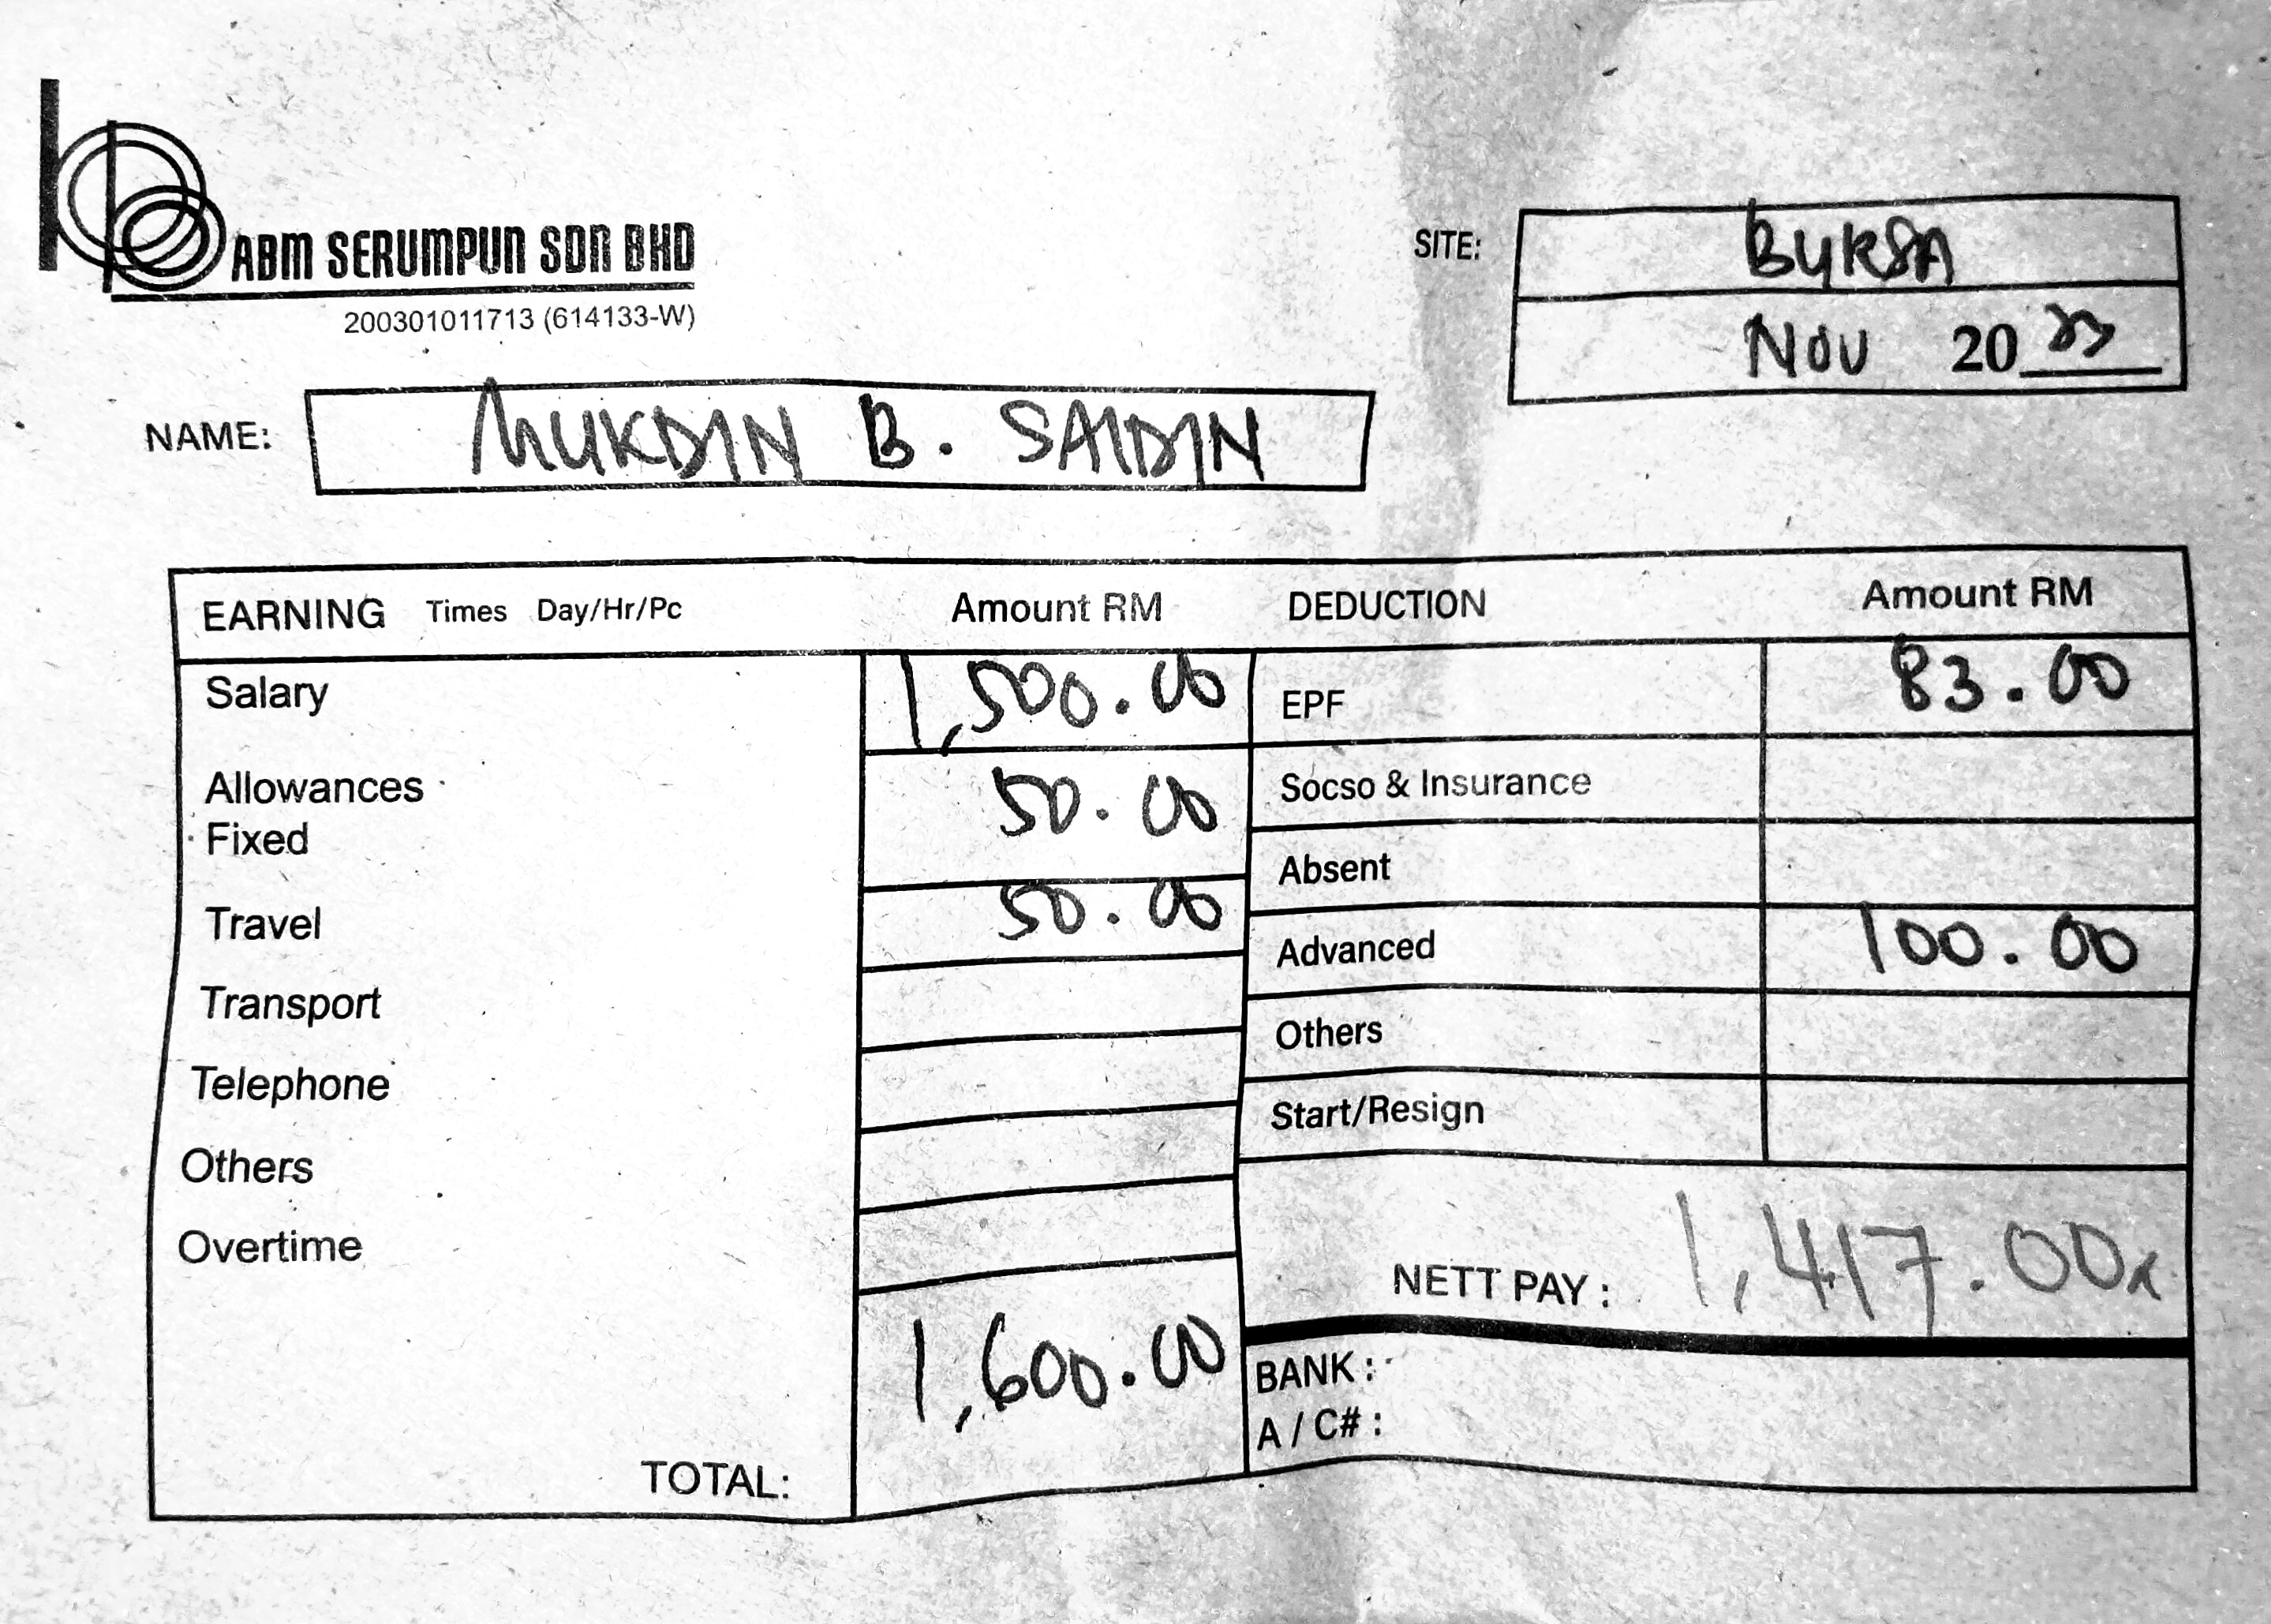 ABM SERUMPUN SDN BHD
200301011713 (614133-W)
SITE: BYKSA
NOV 2023
NAME: MUKDIN B. SAIDIN
EARNING Times Day/Hr/Pc Amount RM DEDUCTION Amount RM
Salary 1,500.00 EPF 83.00
Allowances 50.00 Socso & Insurance
Fixed
Absent
Travel 50.00 Advanced 100.00
Transport Others
Telephone Start/Resign
Others
Overtime NETT PAY: 1,417.00
1,600.00 BANK:
A / C#:
TOTAL: